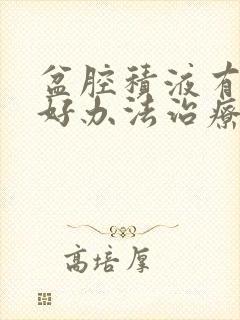 盆腔積液有
好办法治療
高培厚